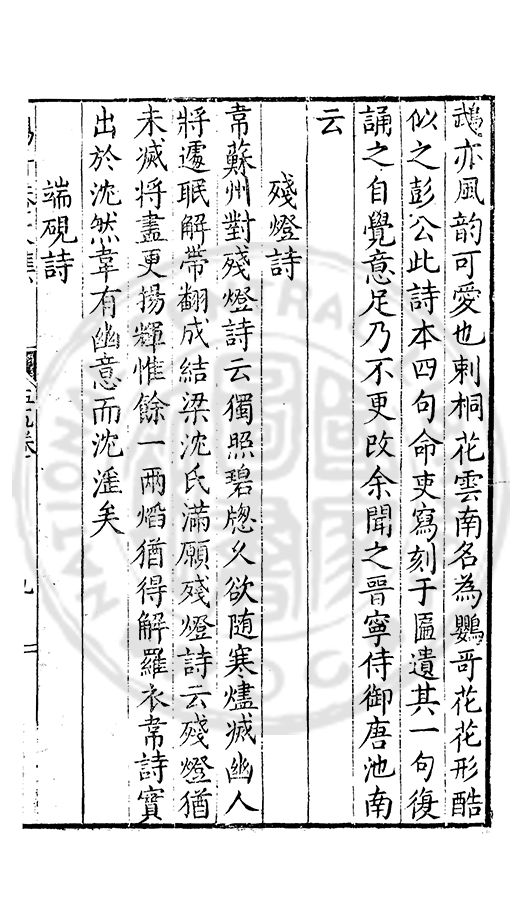 鵡亦風韵可愛也刺桐花雲南名為鸚哥花花形酷
似之彭公此詩本四句命吏寫刻于匾遺其一句復
誦之自覺意足乃不更改余聞之晋寧侍御唐池南
云
殘燈詩
韋蘇州對殘燈詩云獨照碧牕久欲随寒燼滅幽人
將遽眠解帶翻成結梁沈氏滿願殘燈詩云殘燈猶
未滅將盡更揚輝惟餘一兩熖猶得解羅衣韋詩實
出於沈然韋有幽意而沈滛矣
端硯詩